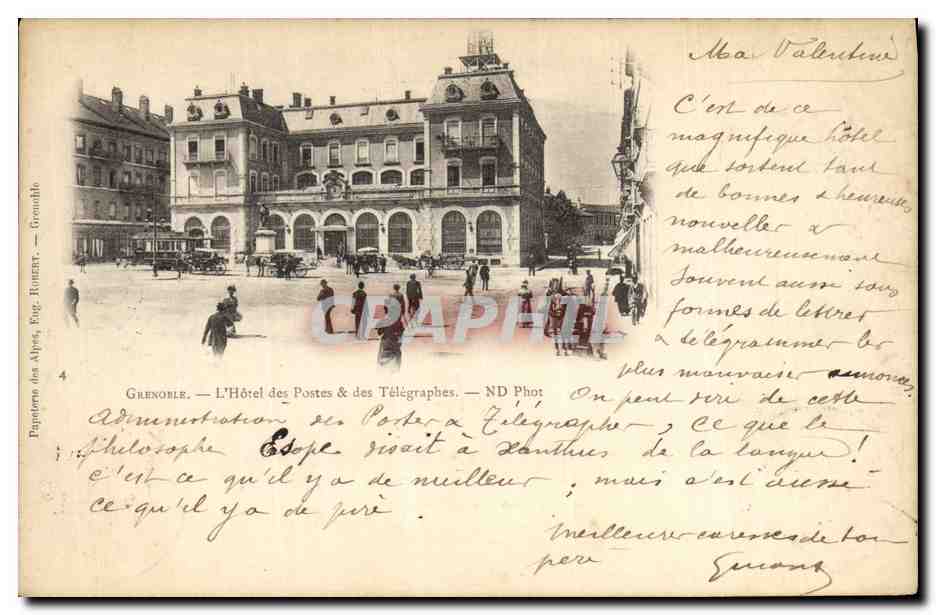 Ma Valentine
C'est de ce
magnifique hôtel
que sortent tant
de bonnes & heureuses
nouvelles &
malheureusement
souvent aussi sous
formes de lettres
& télégrammes les
plus mauvaises annonces.
Papeterie des Alpes, Eug. ROBERT. — Grenoble
CPAPHIL
4
GRENOBLE. — L'Hôtel des Postes & des Télégraphes. — ND Phot
On peut dire de cette
administration des Postes & Télégraphes, ce que le
philosophe Esope disait à Xanthus de la langue!
c'est ce qu'il y a de meilleur, mais c'est aussi
ce qu'il y a de pire.
Meilleures caresses de ton
père